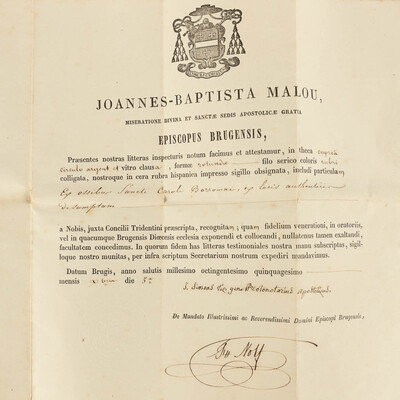 JOANNES-BAPTISTA MALOU,
MISERATIONE DIVINA ET SANCTÆ SEDIS APOSTOLICÆ GRATIA
EPISCOPUS BRUGENSIS,
Præsentes nostras litteras inspecturis notum facimus et attestamur, in theca cuprea
circulo argent et vitro clausa, formæ rotundæ filo serico coloris rubri
colligata, nostroque in cera rubea hispanica impresso sigillo obsignata, includi particulam
Ex ossibus Sancti Caroli Borromæi, ex locis authenticis
desumptam
a Nobis, juxta Concilii Tridentini præscripta, quam fidelium venerationi, in oratoriis,
vel in quacumque Brugensis Diœcesis ecclesia exponendi et collocandi, nullatenus tamen exaltandi,
facultatem concedimus. In quorum fidem has litteras testimoniales nostra manu subscriptas, sigil-
loque nostro munitas, per infra scriptum Secretarium nostrum expediri mandavimus.
Datum Brugis, anno salutis millesimo octingentesimo quinquagesimo
mensis die 5ᵃ
Protonotarius Apostolicus.
De Mandato Illustrissimi ac Reverendissimi Domini Episcopi Brugensis,